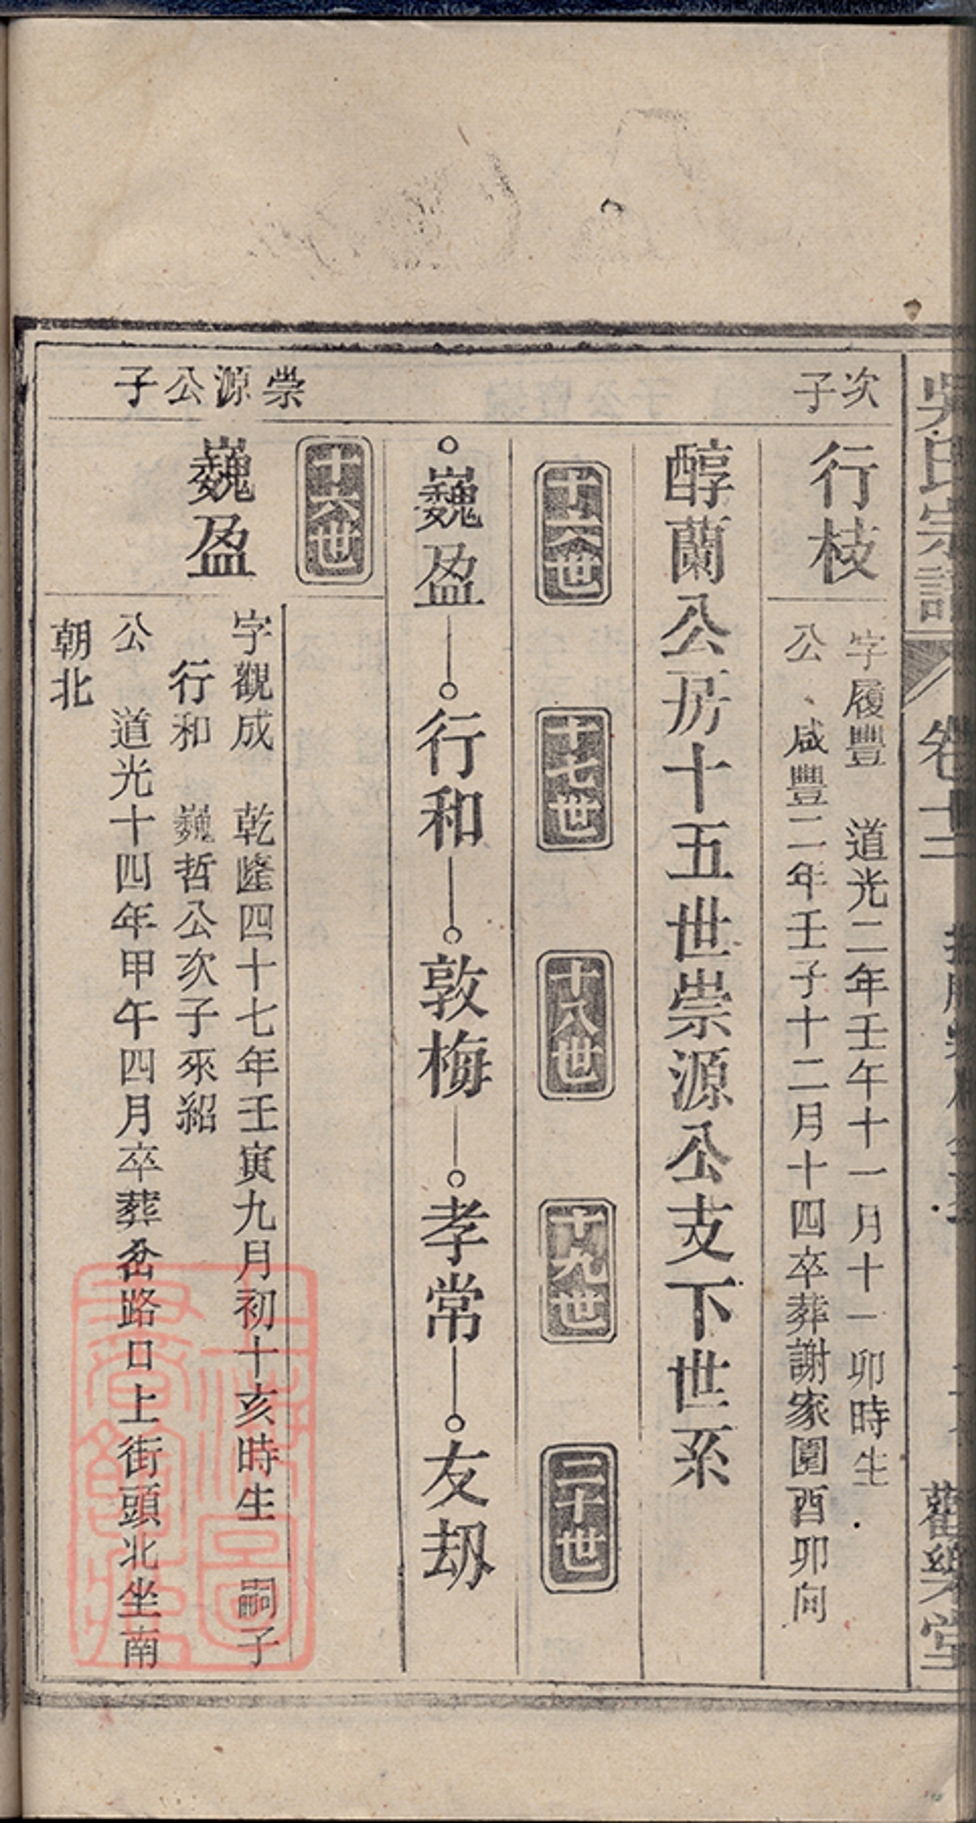 吳氏宗譜
卷十二
觀樂堂
次子
行枝
字履豐 道光二年壬午十一月十一卯時生
公 咸豐二年壬子十二月十四卒葬謝家園酉卯向
醇蘭公房十五世崇源公支下世系
十六世
十七世
十八世
十九世
二十世
巍盈
行和
敦梅
孝常
友刧
崇源公子
十六世
巍盈
字觀成 乾隆四十七年壬寅九月初十亥時生 嗣子
行和 巍哲公次子來紹
公 道光十四年甲午四月卒葬岔路日上街頭北坐南
朝北